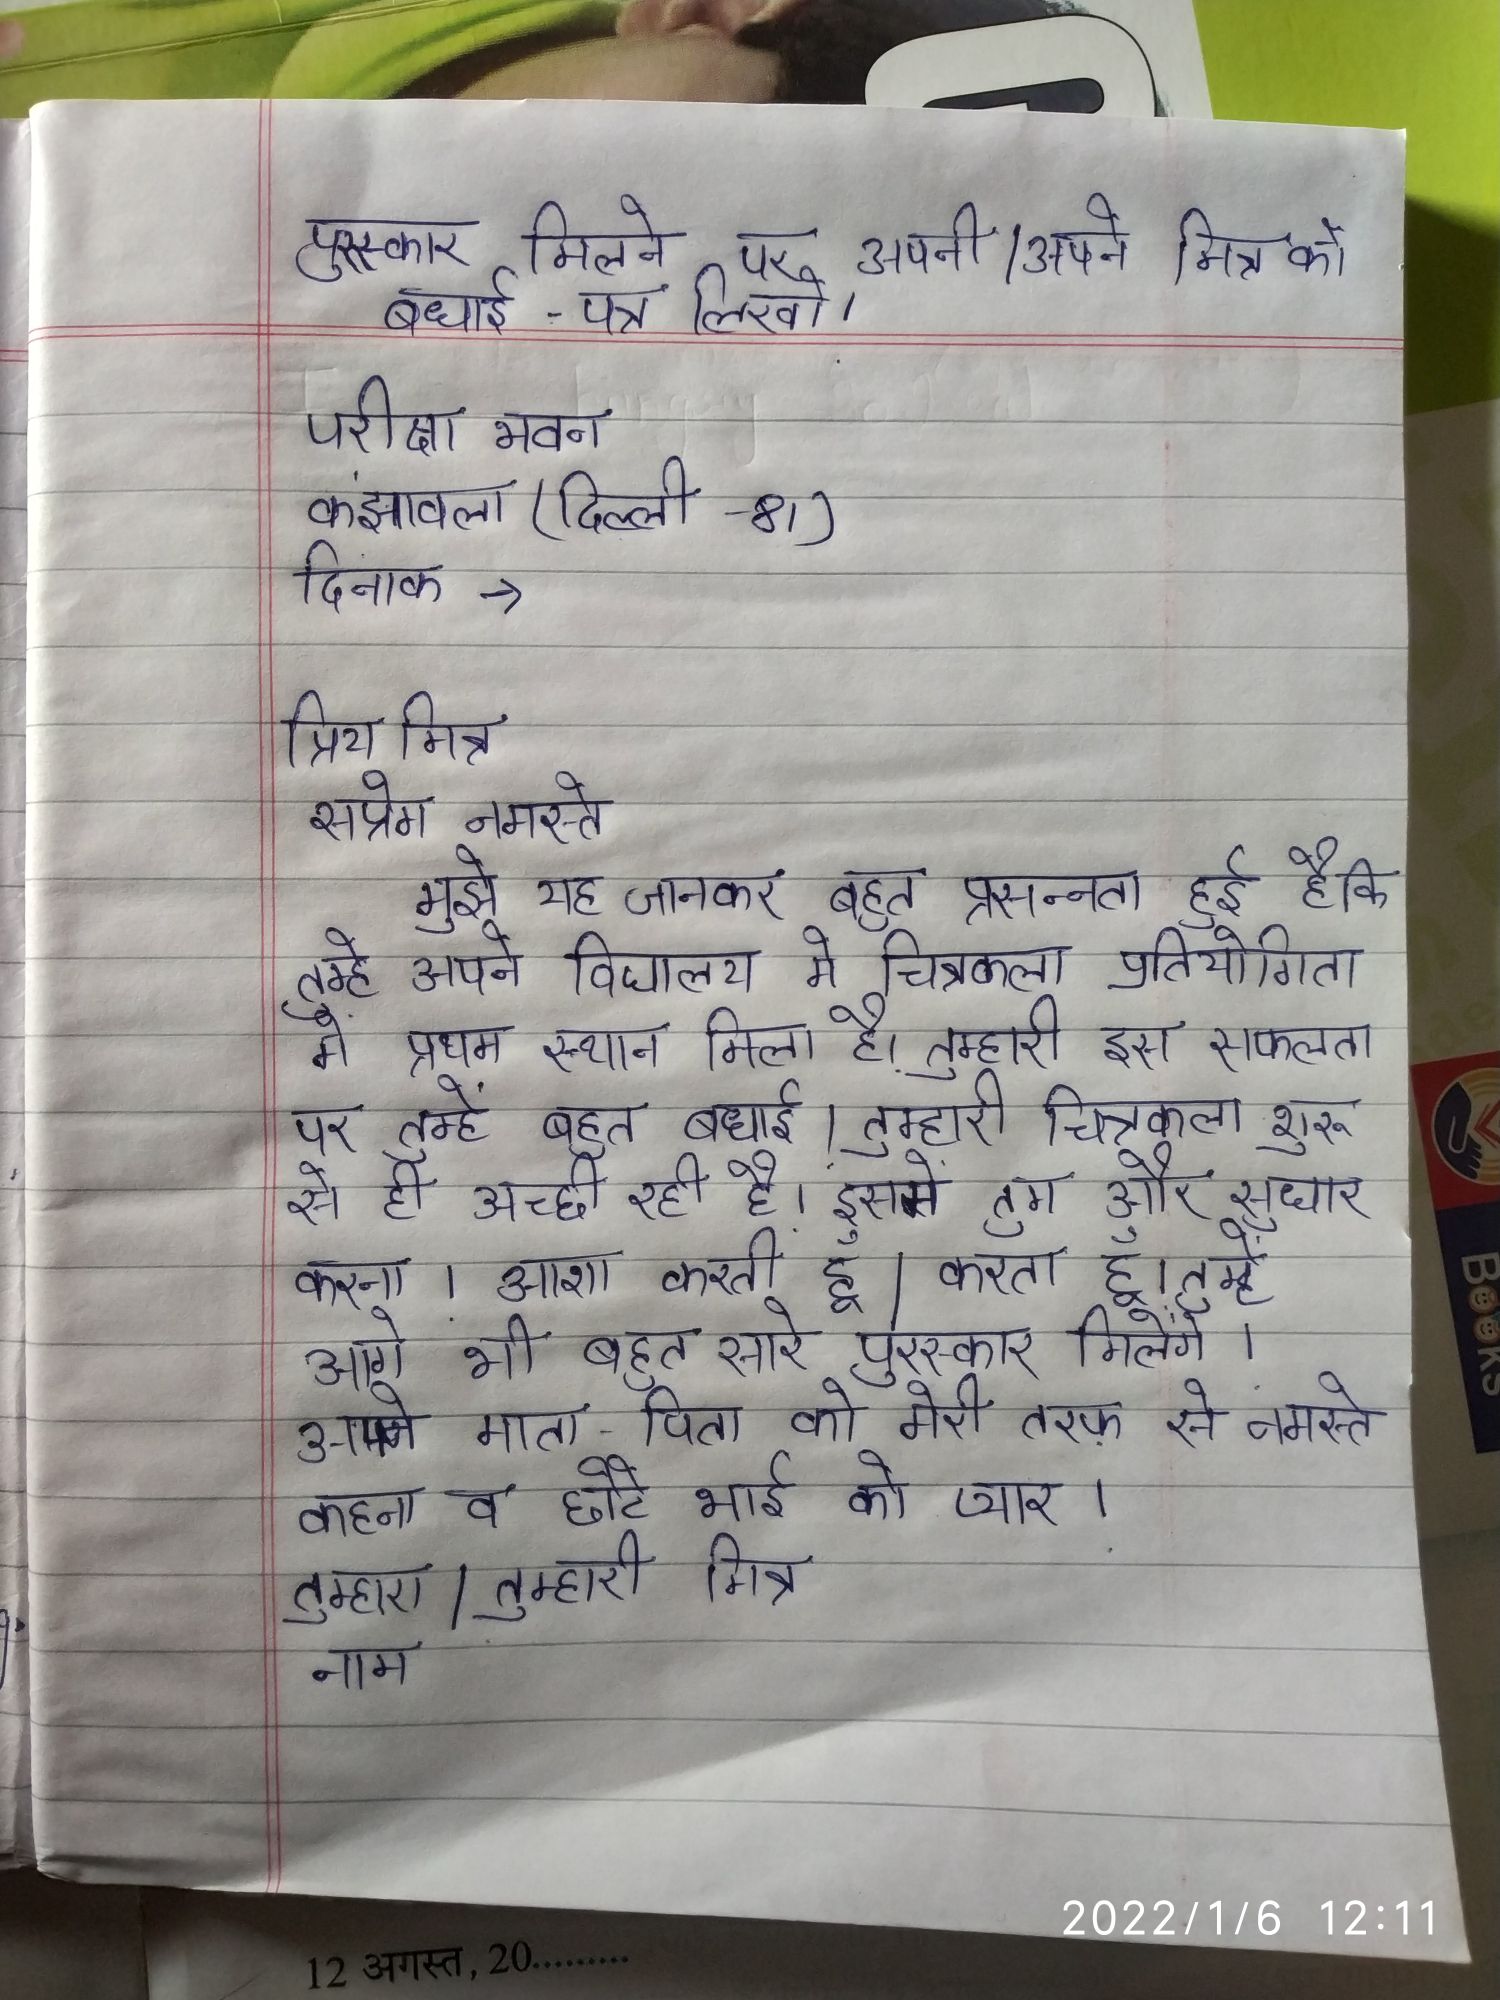 पुरस्कार मिलने पर अपनी/अपने मित्र को
बधाई - पत्र लिखो।
परीक्षा भवन
कंझावला (दिल्ली -81)
दिनांक →
प्रिय मित्र
सप्रेम नमस्ते
मुझे यह जानकर बहुत प्रसन्नता हुई है कि
तुम्हे अपने विद्यालय मे चित्रकला प्रतियोगिता
में प्रथम स्थान मिला है। तुम्हारी इस सफलता
पर तुम्हें बहुत बधाई। तुम्हारी चित्रकला शुरू
से ही अच्छी रही है। इसमें तुम और सुधार
करना। आशा करती हूँ / करता हूँ। तुम्हें
आगे भी बहुत सारे पुरस्कार मिलेंगे।
अपने माता - पिता को मेरी तरफ़ से नमस्ते
कहना व छोटे भाई को प्यार।
तुम्हारा / तुम्हारी मित्र
नाम
2022/1/6 12:11
12 अगस्त, 20.........
BOOKS